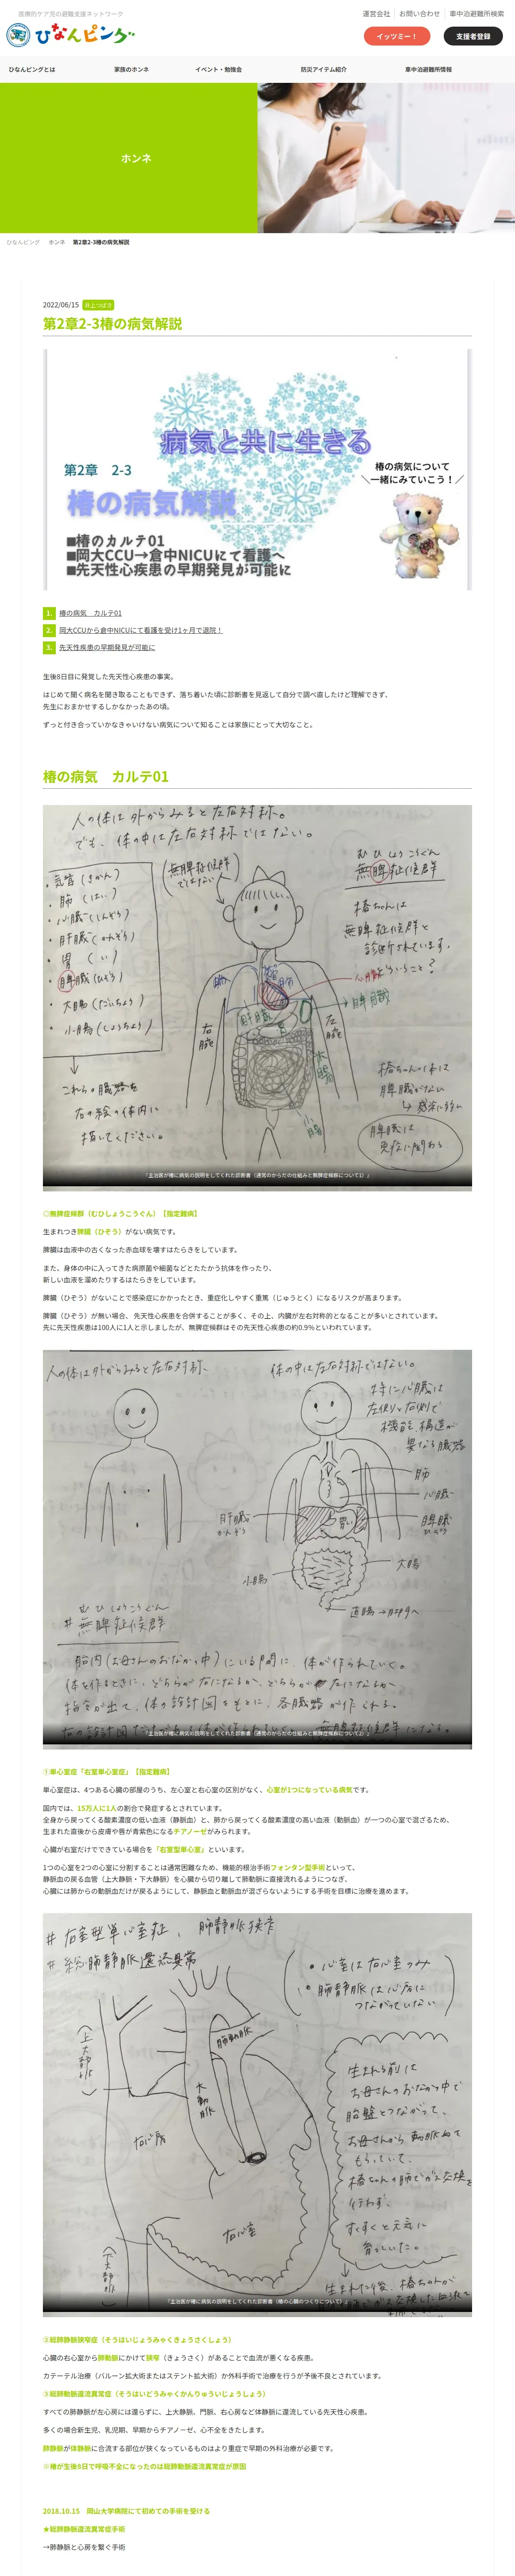 医療的ケア児の避難支援ネットワーク
運営会社
お問い合わせ
車中泊避難所検索
ひなんピング
イッツミー！
支援者登録
ひなんピングとは
家族のホンネ
イベント・勉強会
防災アイテム紹介
車中泊避難所情報
ホンネ
ひなんピング　ホンネ　第2章2-3椿の病気解説
2022/06/15　井上つばさ
第2章2-3椿の病気解説
病気と共に生きる
第2章　2-3
椿の病気解説
椿の病気について
＼一緒にみていこう！／
■椿のカルテ01
■岡大CCU→倉中NICUにて看護へ
■先天性疾患の早期発見が可能に
1. 椿の病気　カルテ01
2. 岡大CCUから倉中NICUにて看護を受け1ヶ月で退院！
3. 先天性疾患の早期発見が可能に
生後8日目に発覚した先天性心疾患の事実。
はじめて聞く病名を聞き取ることもできず、落ち着いた頃に診断書を見返して自分で調べ直したけど理解できず、
先生におまかせするしかなかったあの頃。
ずっと付き合っていかなきゃいけない病気について知ることは家族にとって大切なこと。
椿の病気　カルテ01
人の体は外からみると左右対称。
でも、体の中は左右対称ではない。
・気管(きかん)
・肺(はい)
・心臓(しんぞう)
・肝臓(かんぞう)
・胃(い)
・脾臓(ひぞう)
・大腸(だいちょう)
・小腸(しょうちょう)
これらの臓器を
右の絵の体内に
描いてください。
無脾症候群
ではない
むひしょうこうぐん
無脾症候群
椿ちゃんは
無脾症候群と
診断されています。
どういうこと?
肺
心臓
肝臓
胃
脾臓
大腸
小腸
右腕
左腕
椿ちゃんの体は
脾臓がない
↳感染に弱い
脾臓は
免疫に関わる
『主治医が椿に病気の説明をしてくれた診断書（通常のからだの仕組みと無脾症候群について1）』
◎無脾症候群（むひしょうこうぐん）【指定難病】
生まれつき脾臓（ひぞう）がない病気です。
脾臓は血液中の古くなった赤血球を壊すはたらきをしています。
また、身体の中に入ってきた病原菌や細菌などとたたかう抗体を作ったり、
新しい血液を溜めたりするはたらきをしています。
脾臓（ひぞう）がないことで感染症にかかったとき、重症化しやすく重篤（じゅうとく）になるリスクが高まります。
脾臓（ひぞう）が無い場合、 先天性心疾患を合併することが多く、その上、内臓が左右対称的となることが多いとされています。
先に先天性疾患は100人に1人と示しましたが、無脾症候群はその先天性心疾患の約0.9%といわれています。
人の体は外からみると左右対称だが、
体の中は左右対称ではない。
特に心臓は
左側と右側で
機能、構造が
異なる臓器
肺
心臓
脾臓
ひぞう
肝臓
かんぞう
胃
小腸
大腸
直腸→肛門へ
むひしょうこうぐん
#無脾症候群
胎内(お母さんのおなかの中)にいる間に、体が作られていく。
体を作るときに、どちらが右になるか、どちらが左になるか
指令が出て、体の設計図をもとに、各臓器が作られる。
『主治医が椿に病気の説明をしてくれた診断書（通常のからだの仕組みと無脾症候群について2）』
①単心室症「右室単心室症」【指定難病】
単心室症は、4つある心臓の部屋のうち、左心室と右心室の区別がなく、心室が1つになっている病気です。
国内では、15万人に1人の割合で発症するとされています。
全身から戻ってくる酸素濃度の低い血液（静脈血）と、肺から戻ってくる酸素濃度の高い血液（動脈血）が一つの心室で混ざるため、
生まれた直後から皮膚や唇が青紫色になるチアノーゼがみられます。
心臓が右室だけでできている場合を「右室型単心室」といいます。
1つの心室を2つの心室に分割することは通常困難なため、機能的根治手術フォンタン型手術といって、
静脈血の戻る血管（上大静脈・下大静脈）を心臓から切り離して肺動脈に直接流れるようにつなぎ、
心臓には肺からの動脈血だけが戻るようにして、静脈血と動脈血が混ざらないようにする手術を目標に治療を進めます。
#右室型単心室症, 肺静脈狭窄
#総肺静脈還流異常
・心室は右心室のみ
・肺静脈は心房に
つながっていない
(上大静脈)
肺動脈
大動脈
右心房
右心室
(下大静脈)
生まれる前は
お母さんのおなかの中で
胎盤とつながって、
お母さんから動脈血をもらって、
椿ちゃんの肺でガス交換を
行わず、
すくすくと元気に
育っていた。
『主治医が椿に病気の説明をしてくれた診断書（椿の心臓のつくりについて）』
②総肺静脈狭窄症（そうはいじょうみゃくきょうさくしょう）
心臓の右心室から肺動脈にかけて狭窄（きょうさく）があることで血流が悪くなる疾患。
カテーテル治療（バルーン拡大術またはステント拡大術）か外科手術で治療を行うが予後不良とされています。
③総肺動脈還流異常症（そうはいどうみゃくかんりゅういじょうしょう）
すべての肺静脈が左心房には還らずに、上大静脈、門脈、右心房など体静脈に還流している先天性心疾患。
多くの場合新生児、乳児期、早期からチアノーゼ、心不全をきたします。
肺静脈が体静脈に合流する部位が狭くなっているものはより重症で早期の外科治療が必要です。
※椿が生後8日で呼吸不全になったのは総肺動脈還流異常症が原因
2018.10.15　岡山大学病院にて初めての手術を受ける
★総肺静脈還流異常症手術
→肺静脈と心房を繋ぐ手術